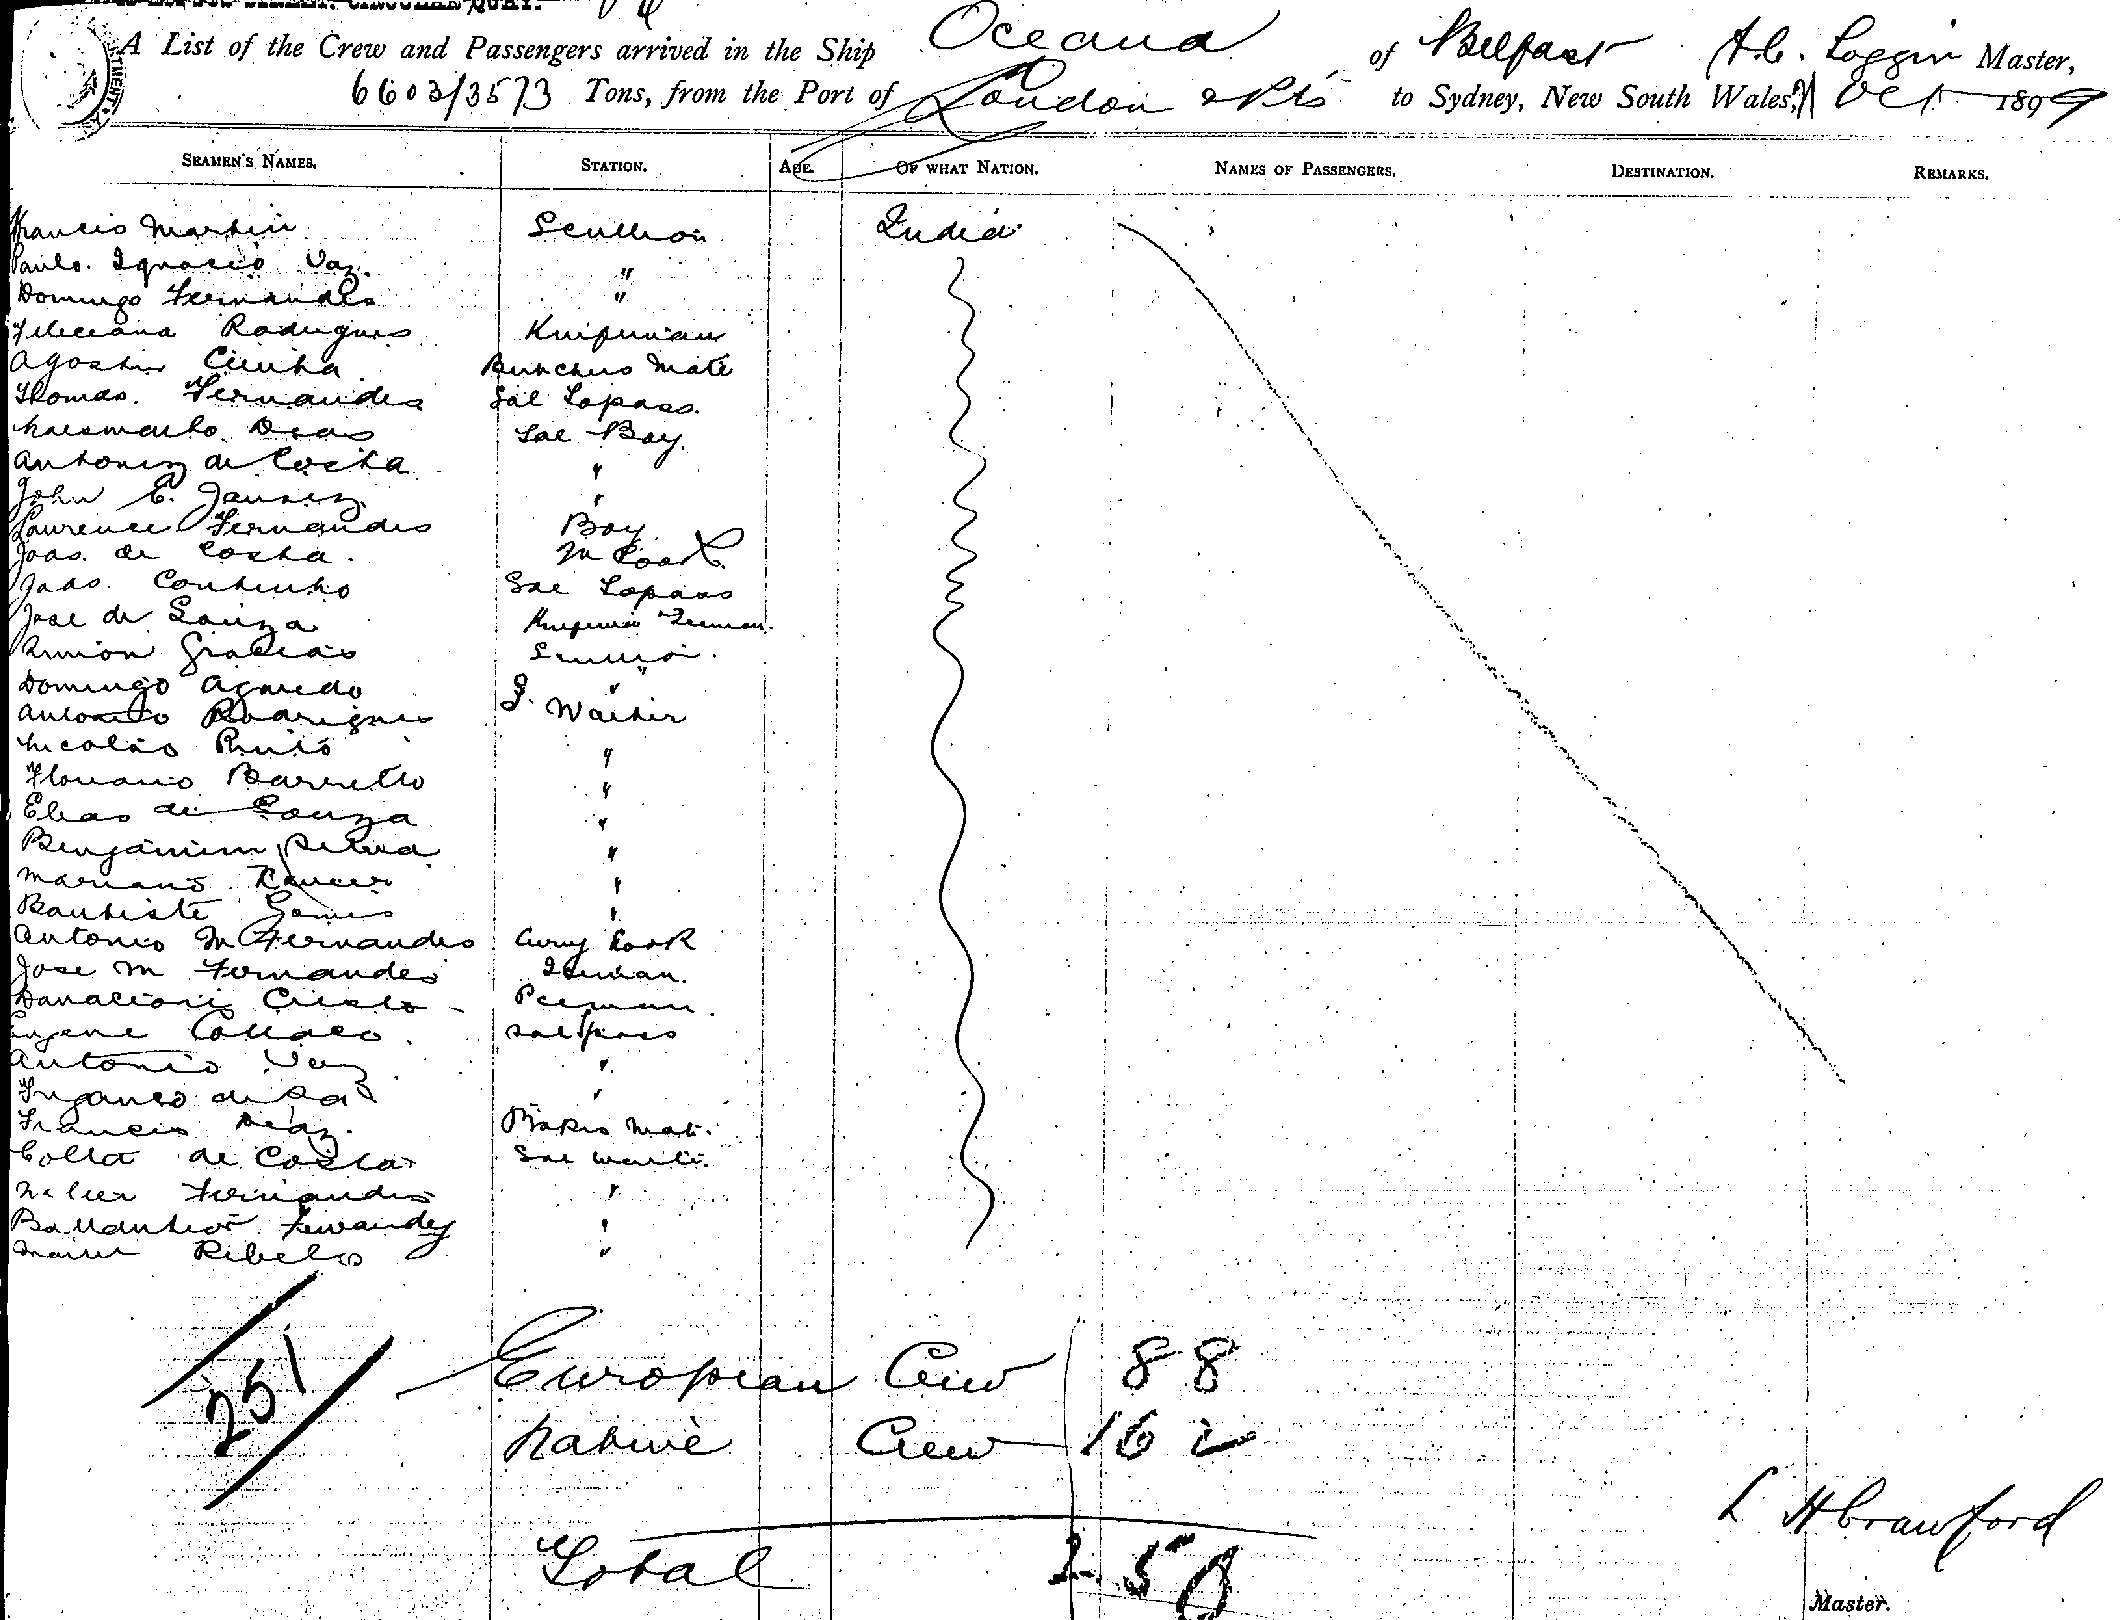 A List of the Crew and Passengers arrived in the Ship Oceana of Belfast A.C. Loggin Master,
6603/3573 Tons, from the Port of London & Pts to Sydney, New South Wales, Oct 1899
SEAMEN'S NAMES. STATION. AGE. OF WHAT NATION. NAMES OF PASSENGERS. DESTINATION. REMARKS.
Francis Martin Scullion India
Paulo. Ignacio Vaz. "
Domingo Fernandes "
Feleciana Rodrigues
Agostin Cunha Butchers Mate
Thomas. Fernandes Sal Topass.
Dias Sal Boy.
Antonio de Costa "
John C. "
Laurence Fernandes Boy
Joao. de Costa. M Cook
Joao. Coutinho Sal Topass
Jose de Souza
Gracias Scullion.
Domingo "
Antonio Rodrigues Waiter
Nicolao Pinto "
Floriano Barretto "
Elias de Souza "
Benjamim Silva "
Mariano "
Bautiste Gomes "
Antonio M Fernandes Curry Cook
Jose M Fernandes
Collaco
Antonio Vaz "
de Sa "
Francis Diaz. Bakers Mate.
de Costa Sal Waiter.
Fernandes "
Fernandes "
Ribelo "
251
European Crew 88
Native Crew 162
Total 250
L H Crawford
Master.